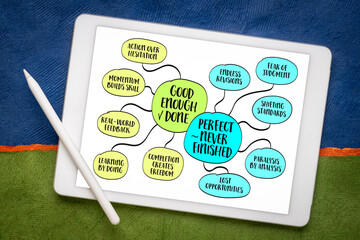 ACTION OVER
HESITATION
MOMENTUM
BUILDS SKILL
REAL-WORLD
FEEDBACK
LEARNING
BY DOING
COMPLETION
CREATES
FREEDOM
GOOD
ENOUGH
√ DONE
PERFECT
~ NEVER
FINISHED
ENDLESS
REVISIONS
FEAR OF
JUDGMENT
SHIFTING
STANDARDS
PARALYSIS
BY ANALYSIS
LOST
OPPORTUNITIES